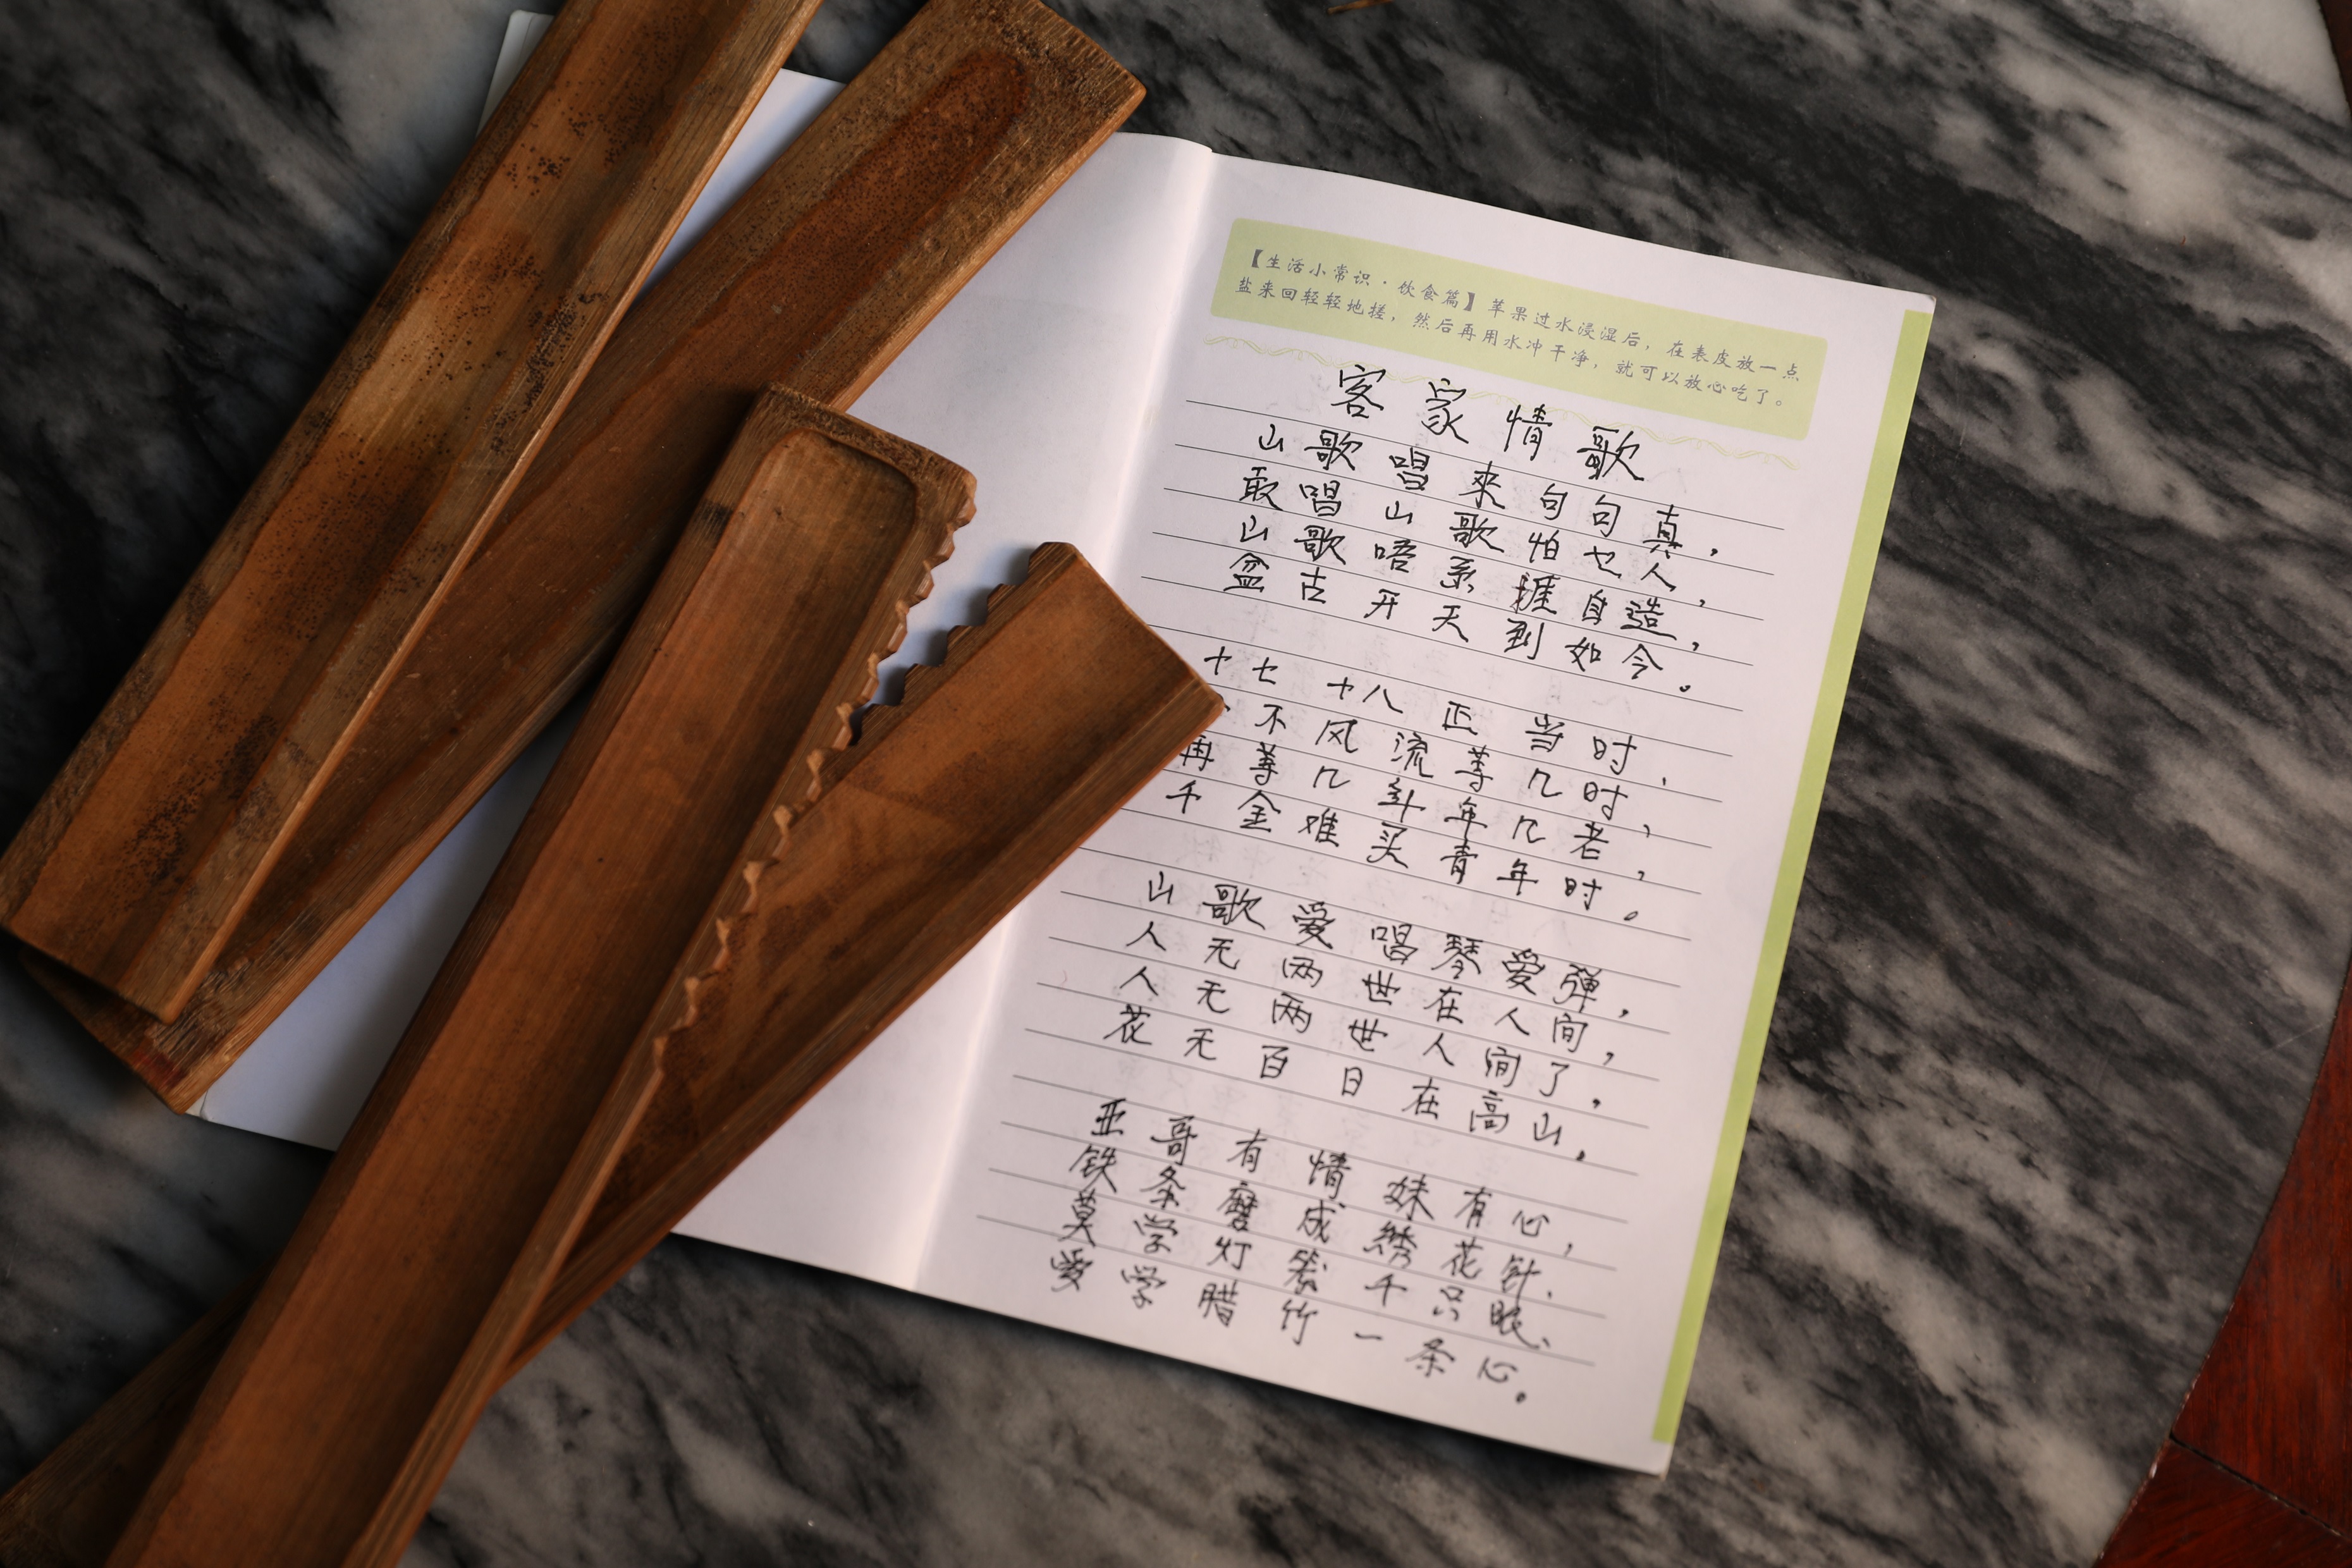 【生活小常识·饮食篇】苹果过水浸湿后，在表皮放一点
盐来回轻轻地搓，然后再用水冲干净，就可以放心吃了。
客家情歌
山歌唱來句句真，
敢唱山歌怕乜人，
山歌唔系捱自造，
盆古开天到如今。
十七十八正当时，
不风流等几时，
再等几年几老，
千金难买青年时。
山歌爱唱琴爱弹，
人无两世在人间，
人无两世人间了，
花无百日在高山。
亚哥有情妹有心，
铁条磨成綉花针，
莫学灯笼千只眼，
爱学腊竹一条心。